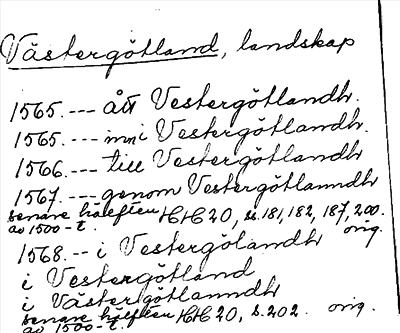 Västergötland, landskap
1565. --- ått Vestergötlandh.
1565. --- inni Vestergötlandh.
1566. --- till Vestergötlandh
1567. --- genom Vestergötlanndh
senare hälften HH 20, ss. 181, 182, 187, 200.
av 1500-t. orig.
1568. -- i Vestergölandh
i Vestergötland
i Västergötlanndh
senare hälften HH 20, s. 202. orig.
av 1500-t.